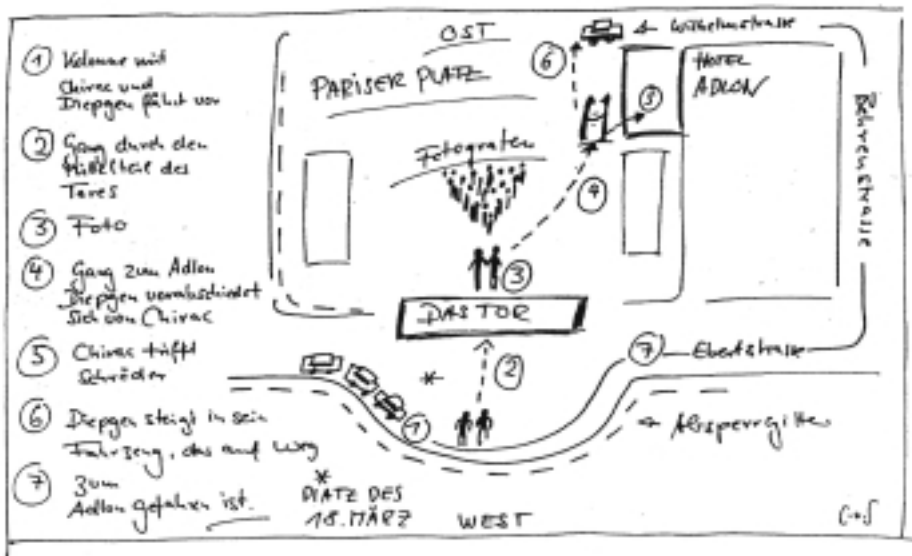 ① Kolonne mit
Chirac und
Diepgen fährt vor
② Gang durch den
Mittelteil des
Tores
③ Foto
④ Gang zum Adlon
Diepgen verabschiedet
sich von Chirac
⑤ Chirac trifft
Schröder
⑥ Diepgen steigt in sein
Fahrzeug, das auf Weg
⑦ zum
Adlon gefahren ist.
OST
PARISER PLATZ
Fotografen
DAS TOR
⑥
Wilhelmstrasse
HOTEL
ADLON
⑤
④
③
②
①
⑦ Ebertstrasse
Behrenstrasse
Absperrgitter
*
* PLATZ DES
18. MÄRZ
WEST